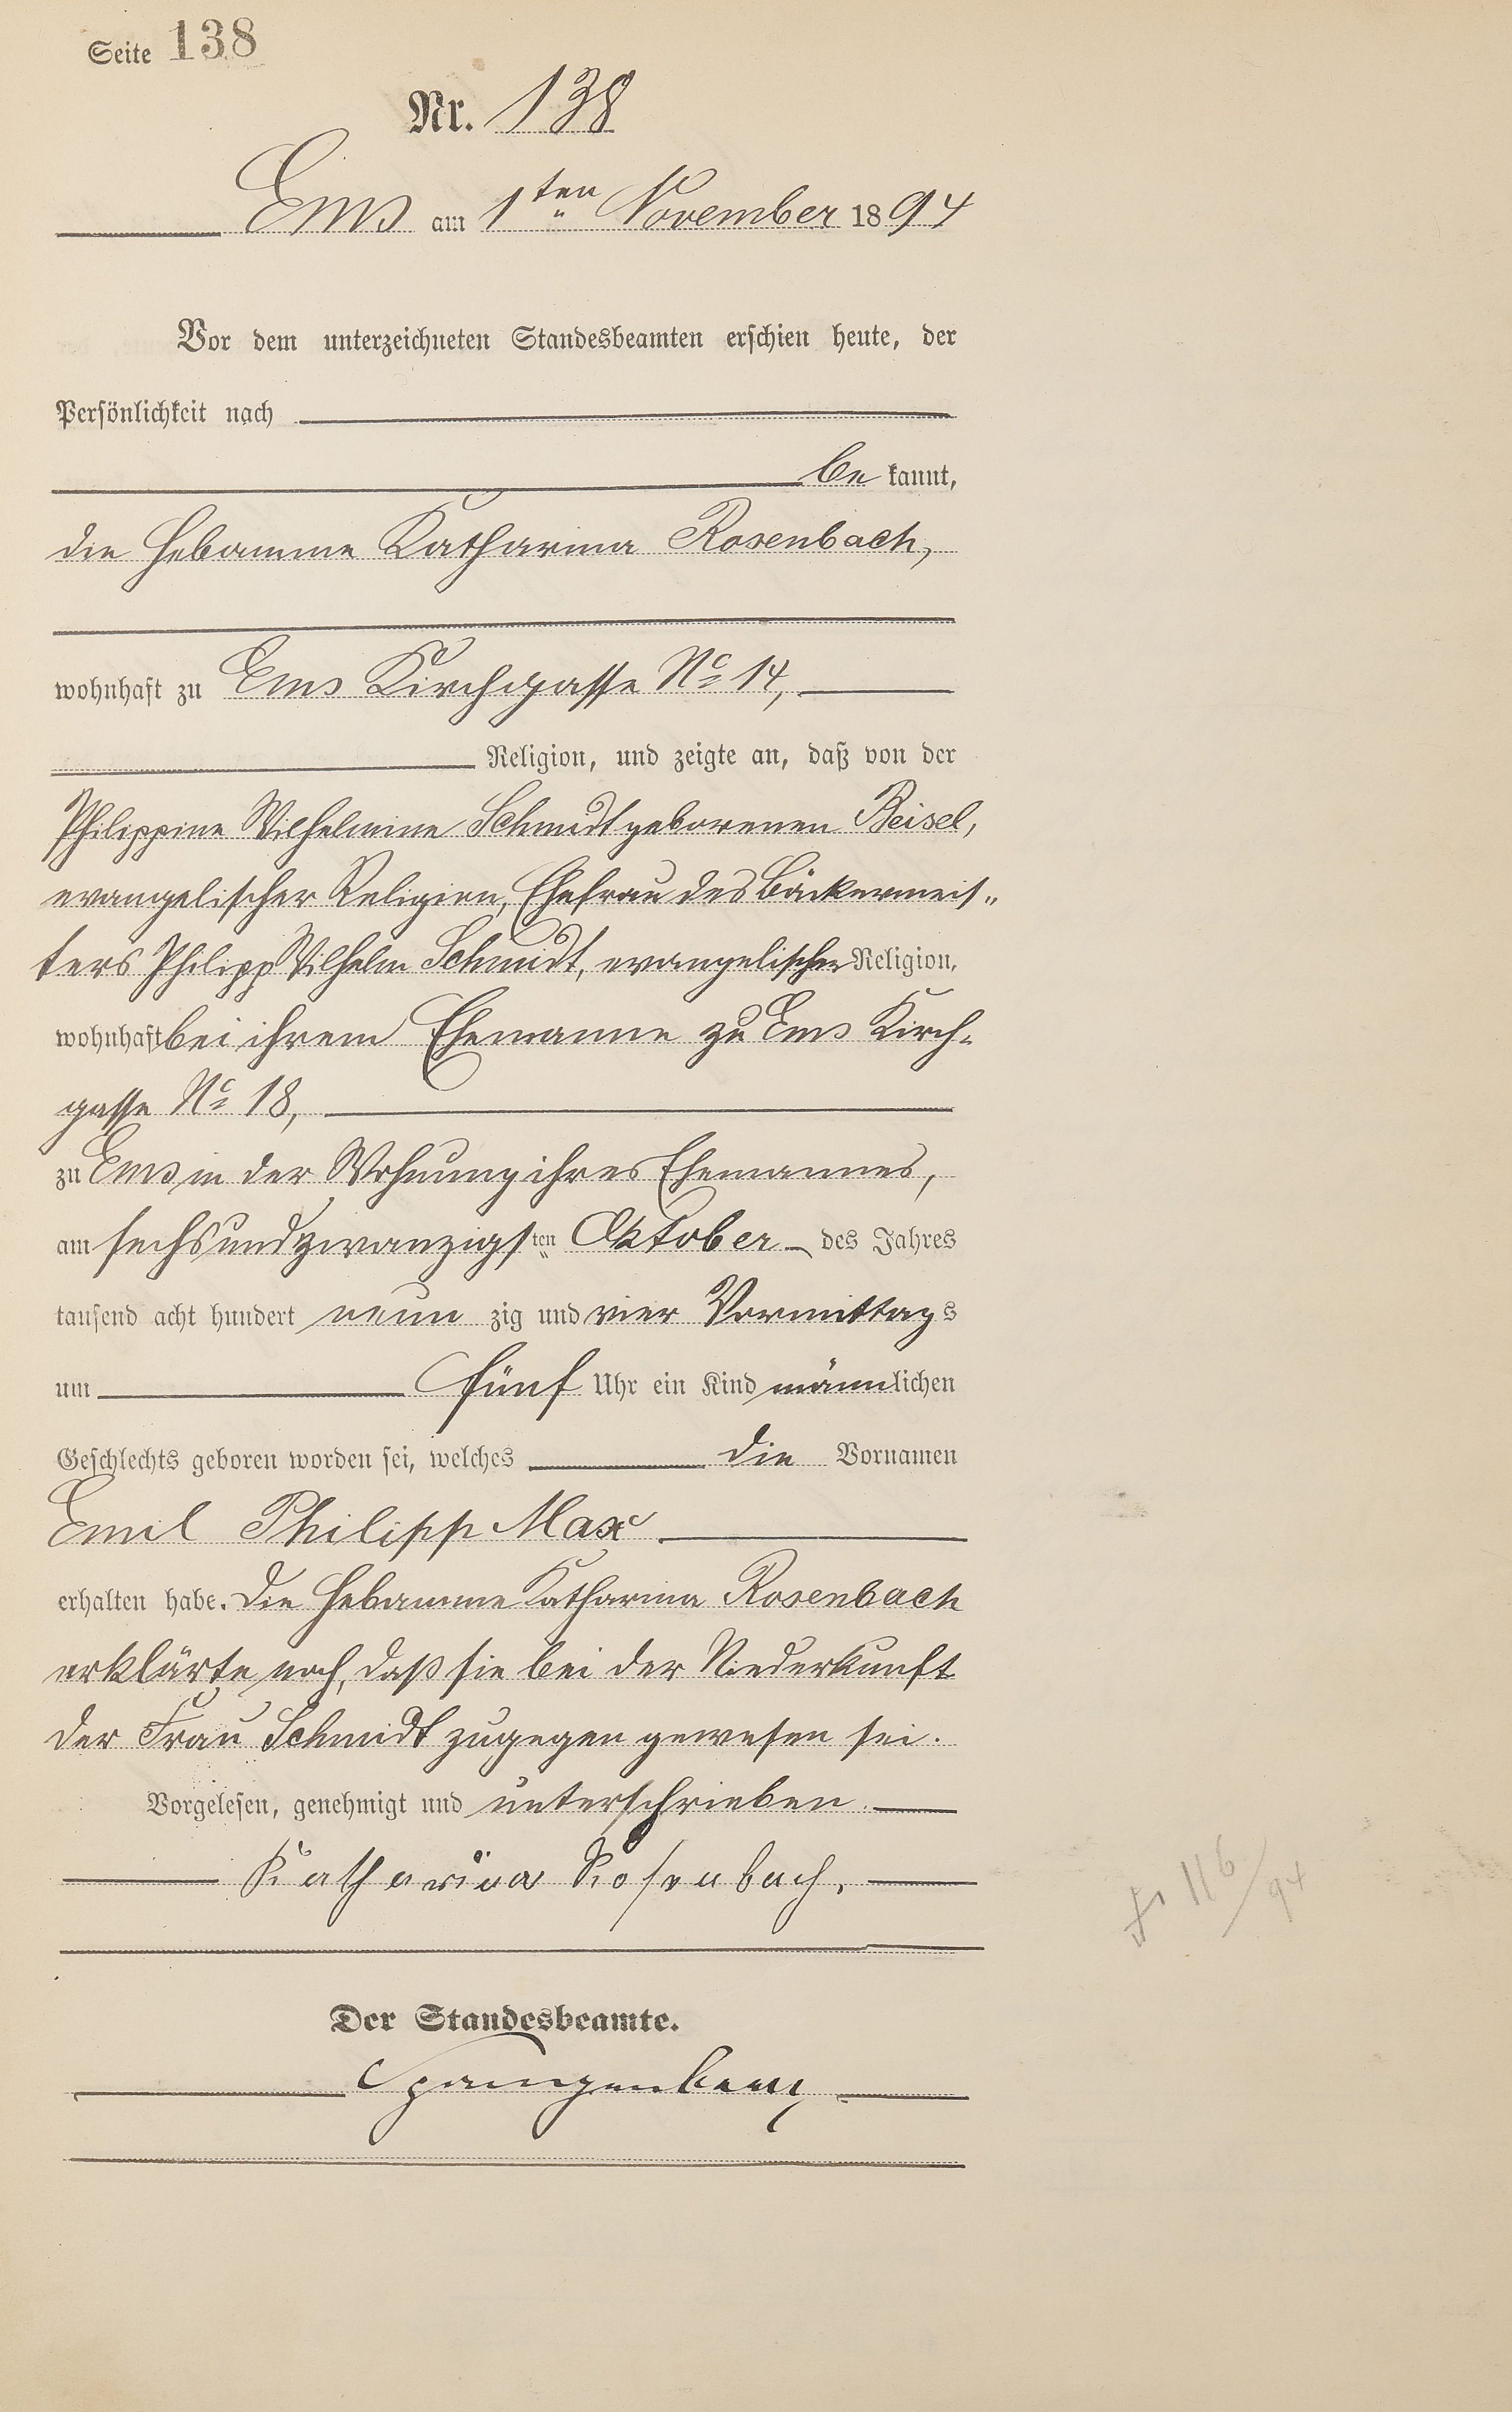 Seite 138
Nr. 138
Ems am 1ten November 1894
Vor dem unterzeichneten Standesbeamten erschien heute, der
Persönlichkeit nach
be kannt,
die Hebamme Katharina Rosenbach,
wohnhaft zu Ems Kirchgasse No 14,
Religion, und zeigte an, daß von der
Philippine Wilhelmine Schmidt geborenen Beisel,
evangelischer Religion, Ehefrau des Bäckermeis„
ters Philipp Wilhelm Schmidt, evangelischer Religion,
wohnhaft bei ihrem Ehemanne zu Ems Kirch-
gasse No 18,
zu Ems in der Wohnung ihres Ehemannes,
am sechsundzwanzigsten Oktober des Jahres
tausend acht hundert neun zig und vier Vormittags
um fünf Uhr ein Kind männlichen
Geschlechts geboren worden sei, welches die Vornamen
Emil Philipp Max
erhalten habe. Die Hebamme Katharina Rosenbach
erklärte noch, daß sie bei der Niederkunft
der Frau Schmidt zugegen gewesen sei.
Vorgelesen, genehmigt und unterschrieben.
Katharina Rosenbach.
Der Standesbeamte.
Spangenberg
116/94